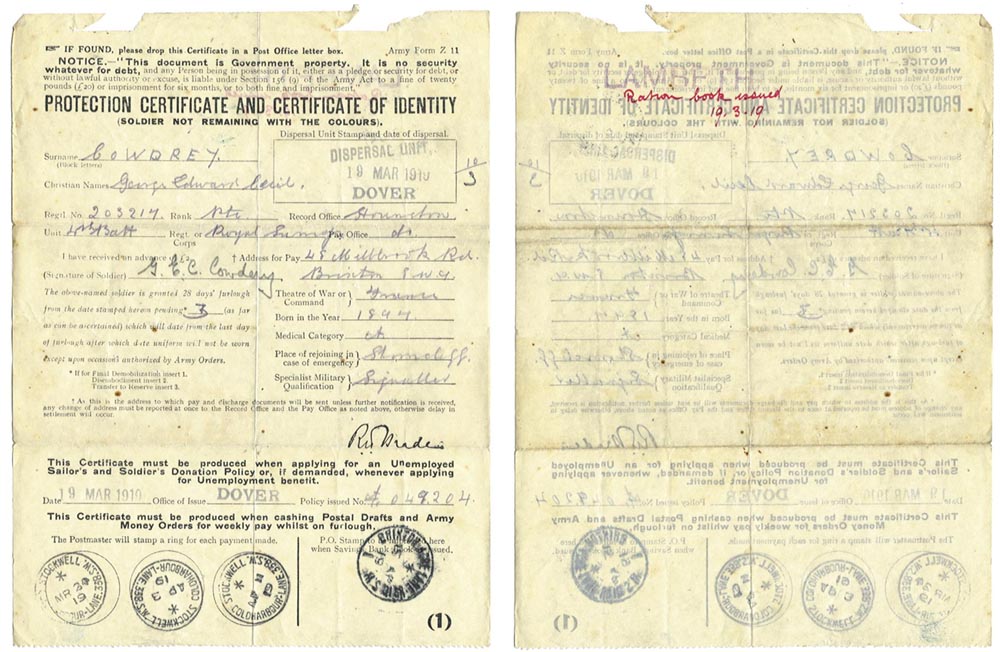 IF FOUND, please drop this Certificate in a Post Office letter box. Army Form Z 11
NOTICE.—"This document is Government property. It is no security
whatever for debt, and any Person being in possession of it, either as a pledge or security for debt, or
without lawful authority or excuse, is liable under Section 156 (9) of the Army Act to a fine of twenty
pounds (£20) or imprisonment for six months, or to both fine and imprisonment.
PROTECTION CERTIFICATE AND CERTIFICATE OF IDENTITY
(SOLDIER NOT REMAINING WITH THE COLOURS).
Dispersal Unit Stamp and date of dispersal.
DISPERSAL UNIT,
19 MAR 1919
DOVER
Surname COWDREY
(Block letters)
Christian Names George Edward Cecil.
Regtl. No. 203217 Rank Pte Record Office Hounslow
Unit 4th Batt Regt. or Corps Royal Pay Office do
I have received an advance of £2. † Address for Pay 48 Millbrook Rd.
(Signature of Soldier) G. E. C. Cowdery Brixton S.W.9
The above-named soldier is granted 28 days' furlough
from the date stamped hereon pending 3 (as far
as can be ascertained) which will date from the last day
of furlough after which date uniform will not be worn
except upon occasions authorized by Army Orders.
* If for Final Demobilization insert 1.
Disembodiment insert 2.
Transfer to Reserve insert 3.
Theatre of War or Command France
Born in the Year
Medical Category A
Place of rejoining in case of emergency
Specialist Military Qualification Signaller
† As this is the address to which pay and discharge documents will be sent unless further notification is received,
any change of address must be reported at once to the Record Office and the Pay Office as noted above, otherwise delay in
settlement will occur.
This Certificate must be produced when applying for an Unemployed
Sailor's and Soldier's Donation Policy or, if demanded, whenever applying
for Unemployment benefit.
Date 19 MAR 1919 Office of Issue DOVER Policy issued No. A 049204.
This Certificate must be produced when cashing Postal Drafts and Army
Money Orders for weekly pay whilst on furlough.
The Postmaster will stamp a ring for each payment made.
P.O. Stamp to be here
when Savings Bank Book issued.
STOCKWELL
MR
19
STOCKWELL
COLDHARBOUR-LANE
AP
19
STOCKWELL
COLDHARBOUR-LANE
BRIXTON
(1)
LAMBETH
Ration book issued
19.3.19